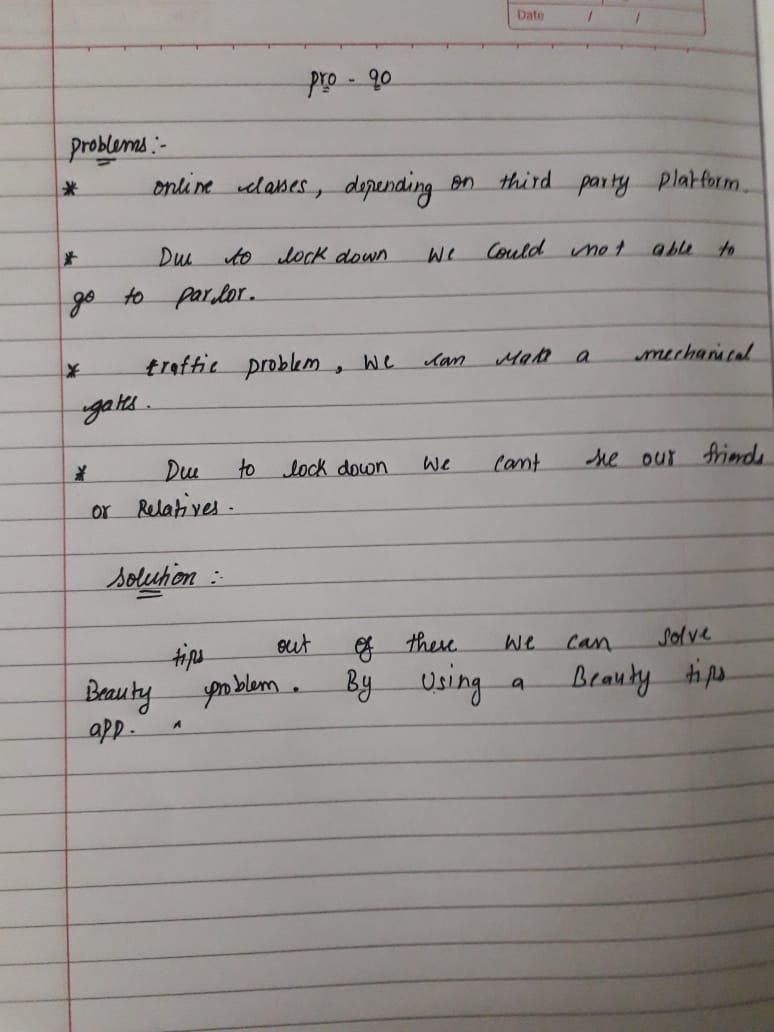 Date / /
pro - 90
problems :-
* online classes, depending on third party platform.
* Due to lock down we could not able to
go to parlor.
* traffic problem, we can make a mechanical
gates.
* Due to lock down we cant see our friends
or Relatives.
solution :-
out of these we can solve
Beauty tips problem. By Using a Beauty tips
app.